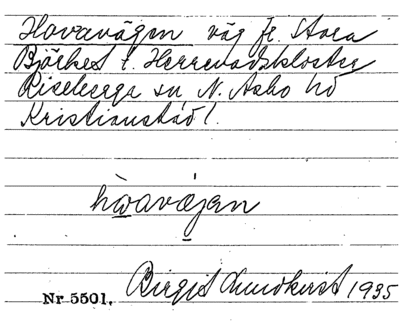 Hovavägen väg fr. Stora
Björket t. Herrevadskloster
Riseberga sn N. Åsbo hd
Kristianstad l.
hωavæjen
Nr 5501. Birgit Lundkvist 1935